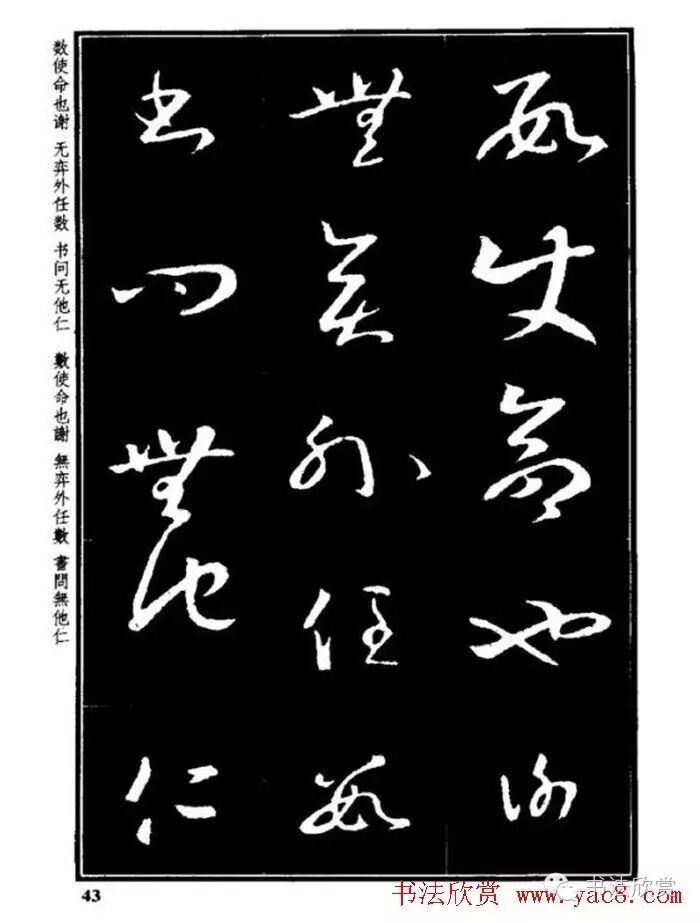 數使命也謝
無弈外任數
書問無他仁
数使命也谢 无弈外任数 书问无他仁
數使命也謝 無弈外任數 書問無他仁
43
书法欣赏 www.yac8.com
书法欣赏